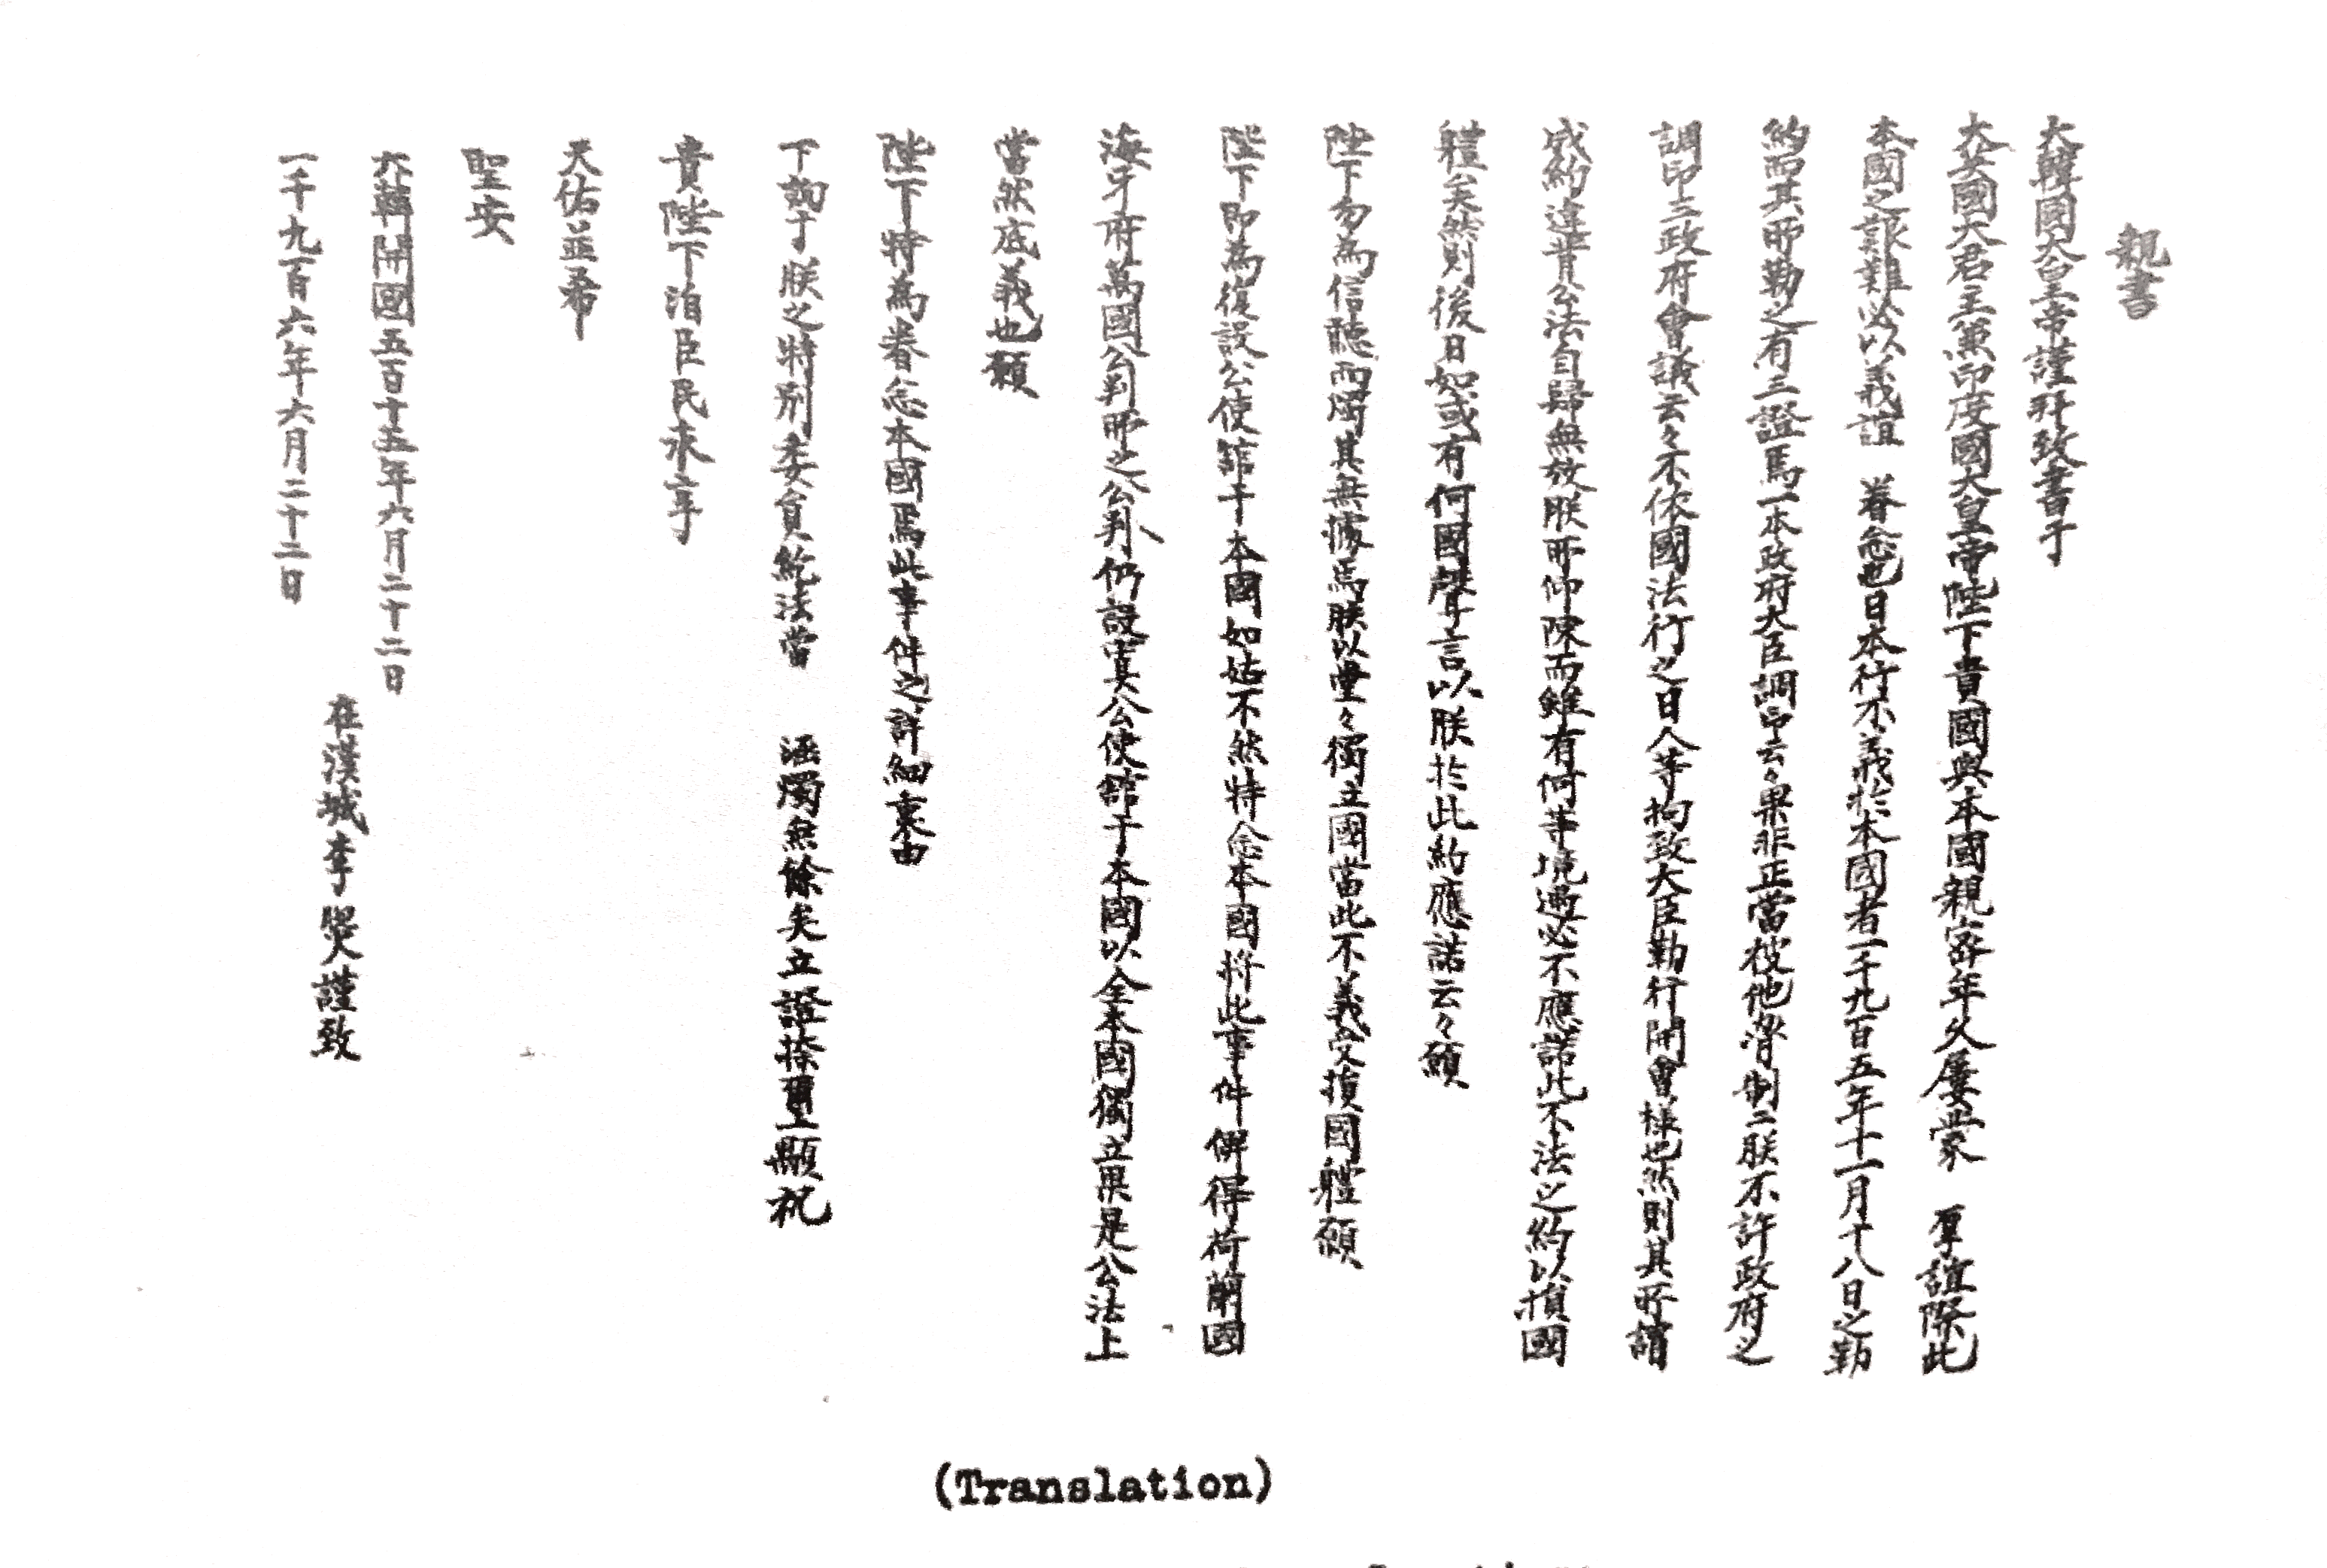 親書
大韓國大皇帝謹拜致書于
大英國大君主兼印度國大皇帝陛下貴國與本國親密年久屢蒙 厚誼際此
本國之艱難必以義誼 眷念也日本行不義於本國者一千九百五年十一月十八日之勒
約而其所勒之有三證焉一本政府大臣調印云々果非正當被他脅制二朕不許政府之
調印三政府會議云々不依國法行之日人等拘致大臣勒行開會樣也然則其所謂
成約違背公法自歸無效朕所仰陳而雖有何等境遇必不應諾此不法之約以損國
軆矣然則後日如或有何國聲言以朕於此約應諾云々願
陛下勿為信聽而燭其無據焉朕以堂々獨立國當此不義受損國軆願
陛下即為復設公使舘于本國如姑不然特念本國將此事件俾得荷蘭國
海牙府萬國公判所之公判仍設寘公使舘于本國以全本國獨立果是公法上
當然底義也願
陛下特為眷念本國焉此事件之詳細裏由
下詢于朕之特別委員紇法當 涵燭無餘矣立證捺璽顒祝
貴陛下洎臣民永享
天佑並希
聖安
大韓開國五百十五年六月二十二日
一千九百六年六月二十二日
在漢城李㷩謹致
(Translation)